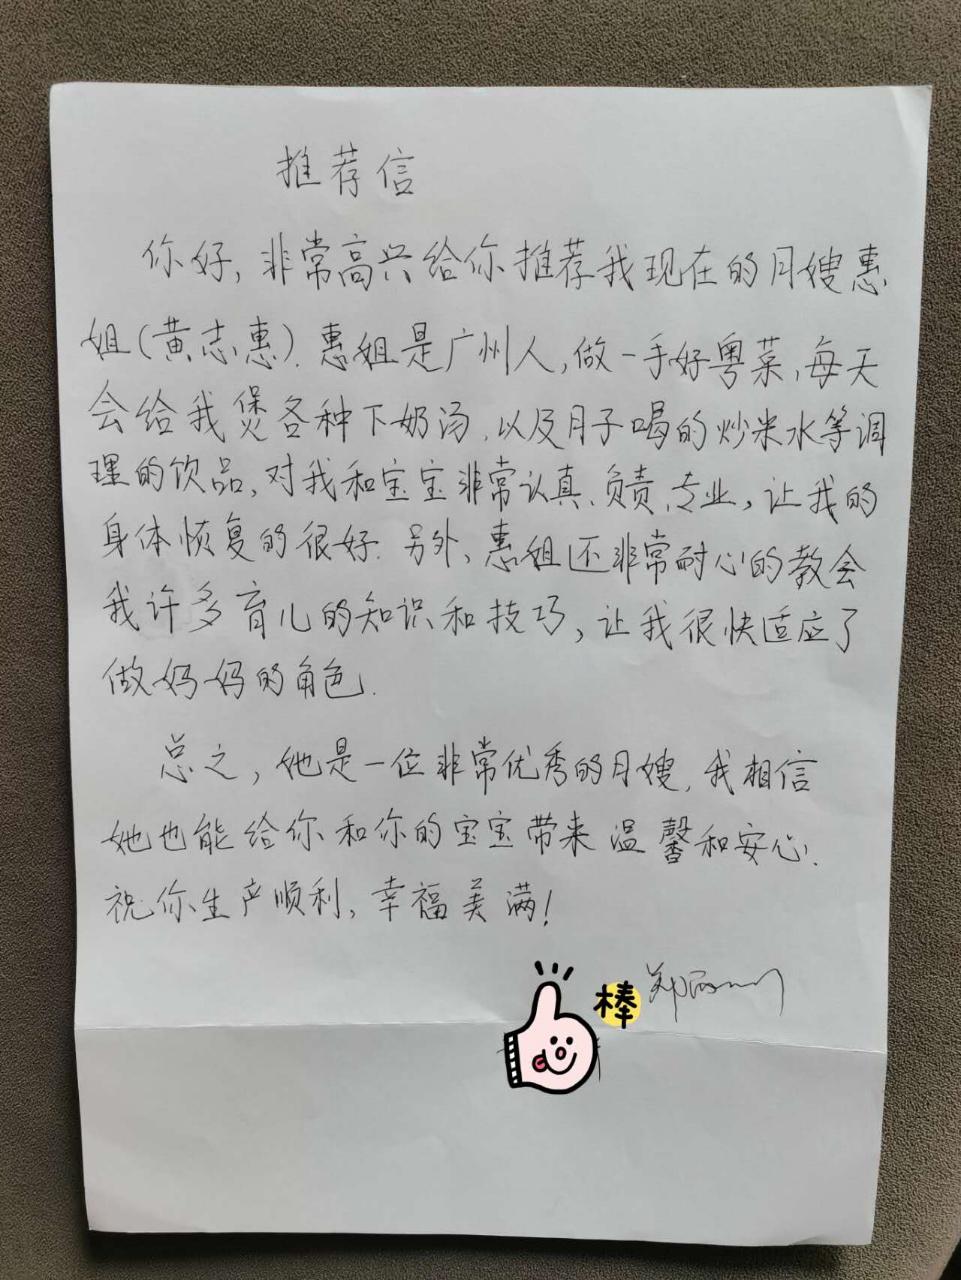 推荐信
你好，非常高兴给你推荐我现在的月嫂惠
姐（黄志惠）.惠姐是广州人，做一手好粤菜，每天
会给我煲各种下奶汤、以及月子喝的炒米水等调
理的饮品，对我和宝宝非常认真、负责、专业，让我的
身体恢复的很好.另外，惠姐还非常耐心的教会
我许多育儿的知识和技巧，让我很快适应了
做妈妈的角色.
总之，她是一位非常优秀的月嫂，我相信
她也能给你和你的宝宝带来温馨和安心.
祝你生产顺利，幸福美满！
棒